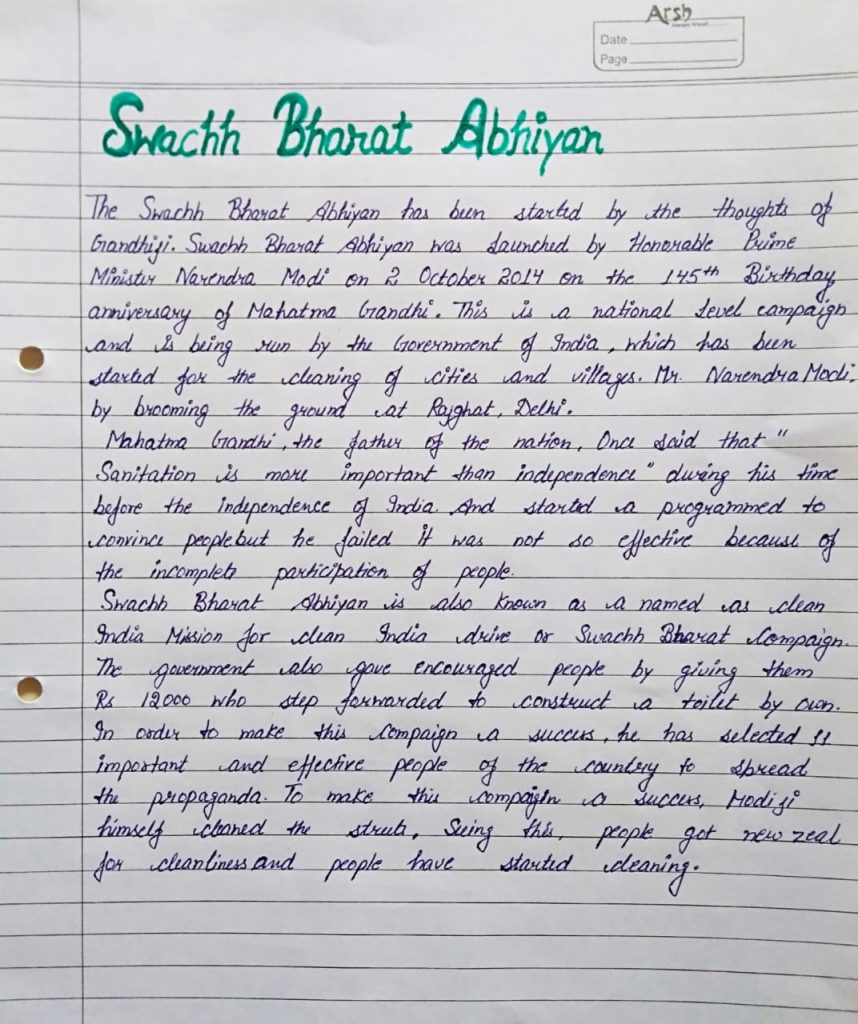 Arsh
Always Ahead
Date
Page
Swachh Bharat Abhiyan
The Swachh Bharat Abhiyan has been started by the thoughts of
Gandhiji. Swachh Bharat Abhiyan was launched by Honorable Prime
Minister Narendra Modi on 2 October 2014 on the 145th Birthday
anniversary of Mahatma Gandhi. This is a national level campaign
and is being run by the Government of India, which has been
started for the cleaning of cities and villages. Mr. Narendra Modi,
by brooming the ground at Rajghat, Delhi.
Mahatma Gandhi, the father of the nation, Once said that "
Sanitation is more important than independence" during his time
before the independence of India. And started a programmed to
convince people but he failed it was not so effective because of
the incomplete participation of people.
Swachh Bharat Abhiyan is also known as a named as clean
India Mission for clean India drive or Swachh Bharat Compaign.
The government also gave encouraged people by giving them
Rs 12000 who step forwarded to construct a toilet by own.
In order to make this Compaign a success, he has selected 11
important and effective people of the country to spread
the propaganda. To make this compaign a success, Modiji
himself cleaned the streets, Seeing this, people got new zeal
for cleanliness and people have started cleaning.